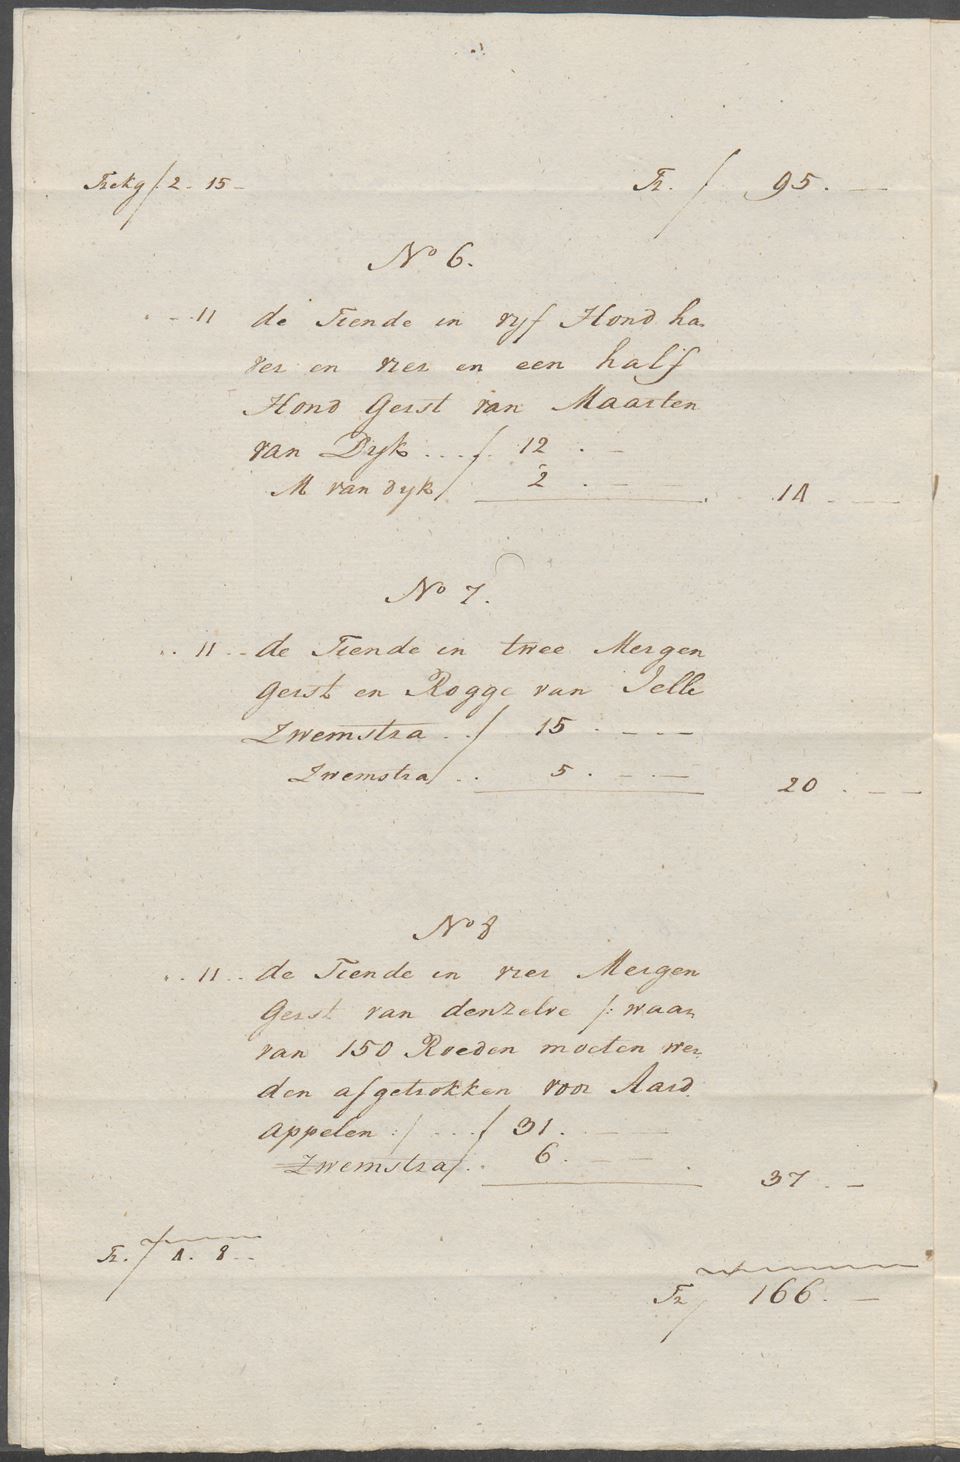 Trekg ƒ 2 - 15 -
Tr. ƒ 95. —
No 6.
. - 11 de Tiende in vyf Hond ha-
ver en vier en een half
Hond Gerst van Maarten
van Dyk .... ƒ 12 . -
M van dyk / 2 . — — 14 - —
No 7.
.. 11 .. de Tiende in twee Mergen
Gerst en Rogge van Jelle
Zwemstra .. ƒ 15 . - — -
Zwemstra / .. 5 . — — 20 . — —
No 8
.. 11 .. de Tiende in vier Mergen
Gerst van denzelve /: waar
van 150 Roeden moeten wer
den afgetrokken voor Aard
appelen :/ ... ƒ 31. — —
Zwemstra / .. 6. — — 37 .. —
Tr. ƒ 4. 8 ..
Tr ƒ 166. —